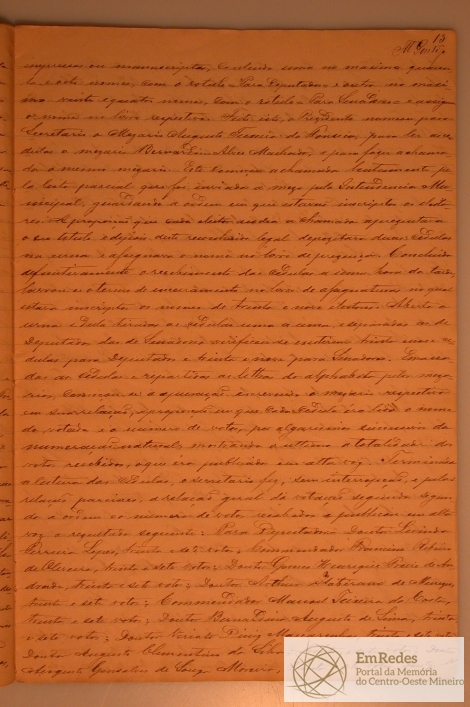 13
impressa ou manuscripta, contendo uma no maximo quaren-
ta e oito nomes, com o rotulo Para Deputados e outra no maxi-
mo vinte e quatro nomes, com o rotulo Para Senadores e assign
o nome no livro respectivo. Feito isto, o Presidente nomeou para
Secretario o Mezario Augusto Teixeira de
o mezario Bernardino Alves Machado, e para fazer a chama-
da o mesmo mezario. Este começou a chamada
la lista parcial que foi enviada á meza pela Intendencia Mu-
nicipal, guardando a ordem em que estavam inscriptos os eleito-
res. A proporção que cada eleitor acudia a chamada apresentava
o seu titulo e depois deste reconhecido legal depositava duas cedulas
na urna e assignava o nome no livro de presença. Concluido
o recebimento das cedulas a uma hora da tarde,
o termo de encerramento no livro de assignaturas no qual
estava inscriptos os nomes de trinta e nove eleitores. Aberta a
urna as cedulas uma a uma, e separadas as de
Deputados das de Senadores verificou-se existirem trinta e nove ce-
dulas para Deputados e trinta e nove para Senadores. Emassa-
das as cedulas e repartidas as letras do alphabeto pelos meza-
rios, começou-se a apuração, escrevendo o mezario respectivo
em sua relação, a proporção em que cada cedula era lida o nome
do votado e o numero de votos, por algarismos successivos da
numeração natural, mostrando o ultimo a totalidade dos
votos recebidos, o que era publicado em alta voz. Terminada
a leitura das cedulas, o secretario fez, sem interrupção, e pelas
relações parciaes, a relação geral da votação seguindo segun-
do a ordem o numero de votos recebidos e publicou em alta
voz o resultado seguinte: Para Deputados Doutor
Ferreira Lopes, trinta e sete votos; Commendador Francisco
de Oliveira, trinta e sete votos; Doutor Gomes Henrique Freire de An-
drade, trinta e sete votos; Doutor Arthur
trinta e sete votos; Commendador Manoel Teixeira da Costa,
trinta e sete votos; Doutor Bernardino Augusto de Lima, trinta
e sete votos; Doutor Viriato Diniz Mascarenhas, trinta e sete votos
Doutor Augusto Clementino da Silva
Augusto Gonçalves de Souza Moreira
EmRedes
Portal da Memória
do Centro-Oeste Mineiro